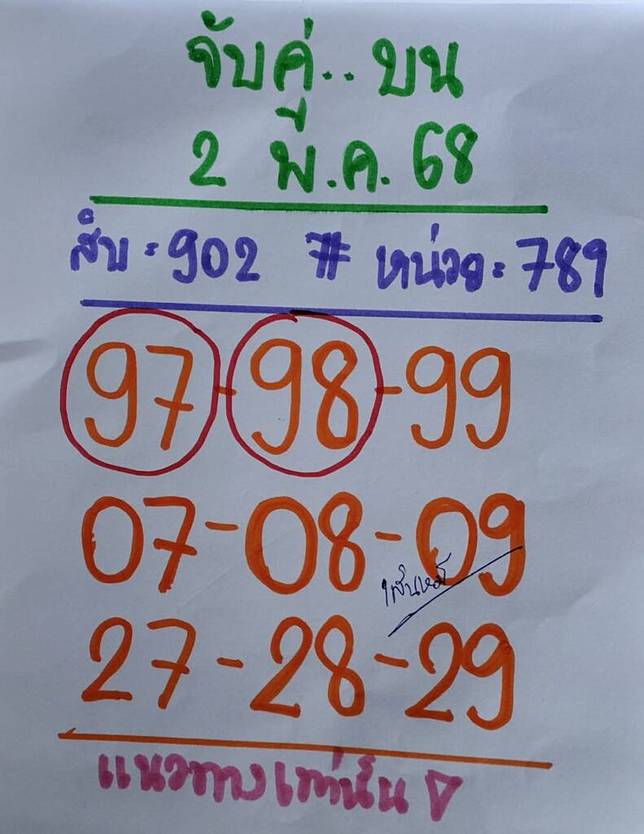 จับคู่..บน
2 พ.ค. 68
สิบ = 902 # หน่วย = 789
97-98-99
07-08-09
27-28-29
แนวทางเท่านั้น